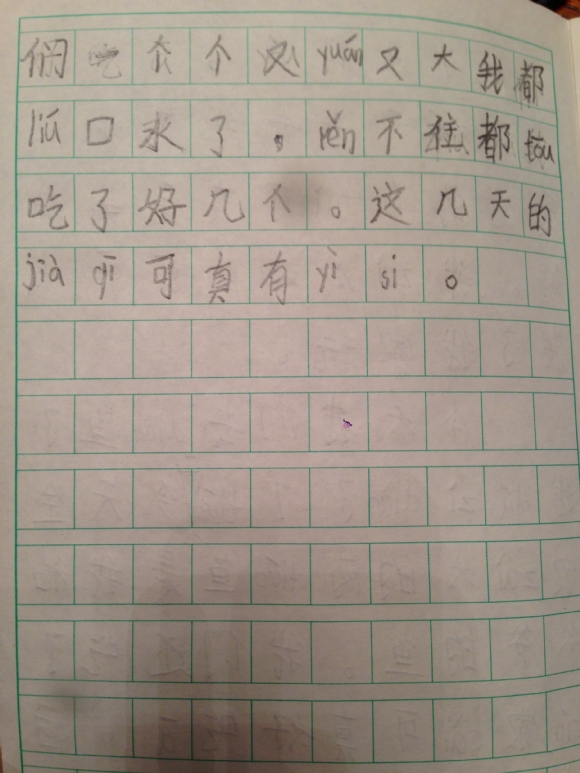 们个个又yuán又大我都
liú口水了,rěn不住都tōu
吃了好几个。这几天的
jià qī可真有yì si。